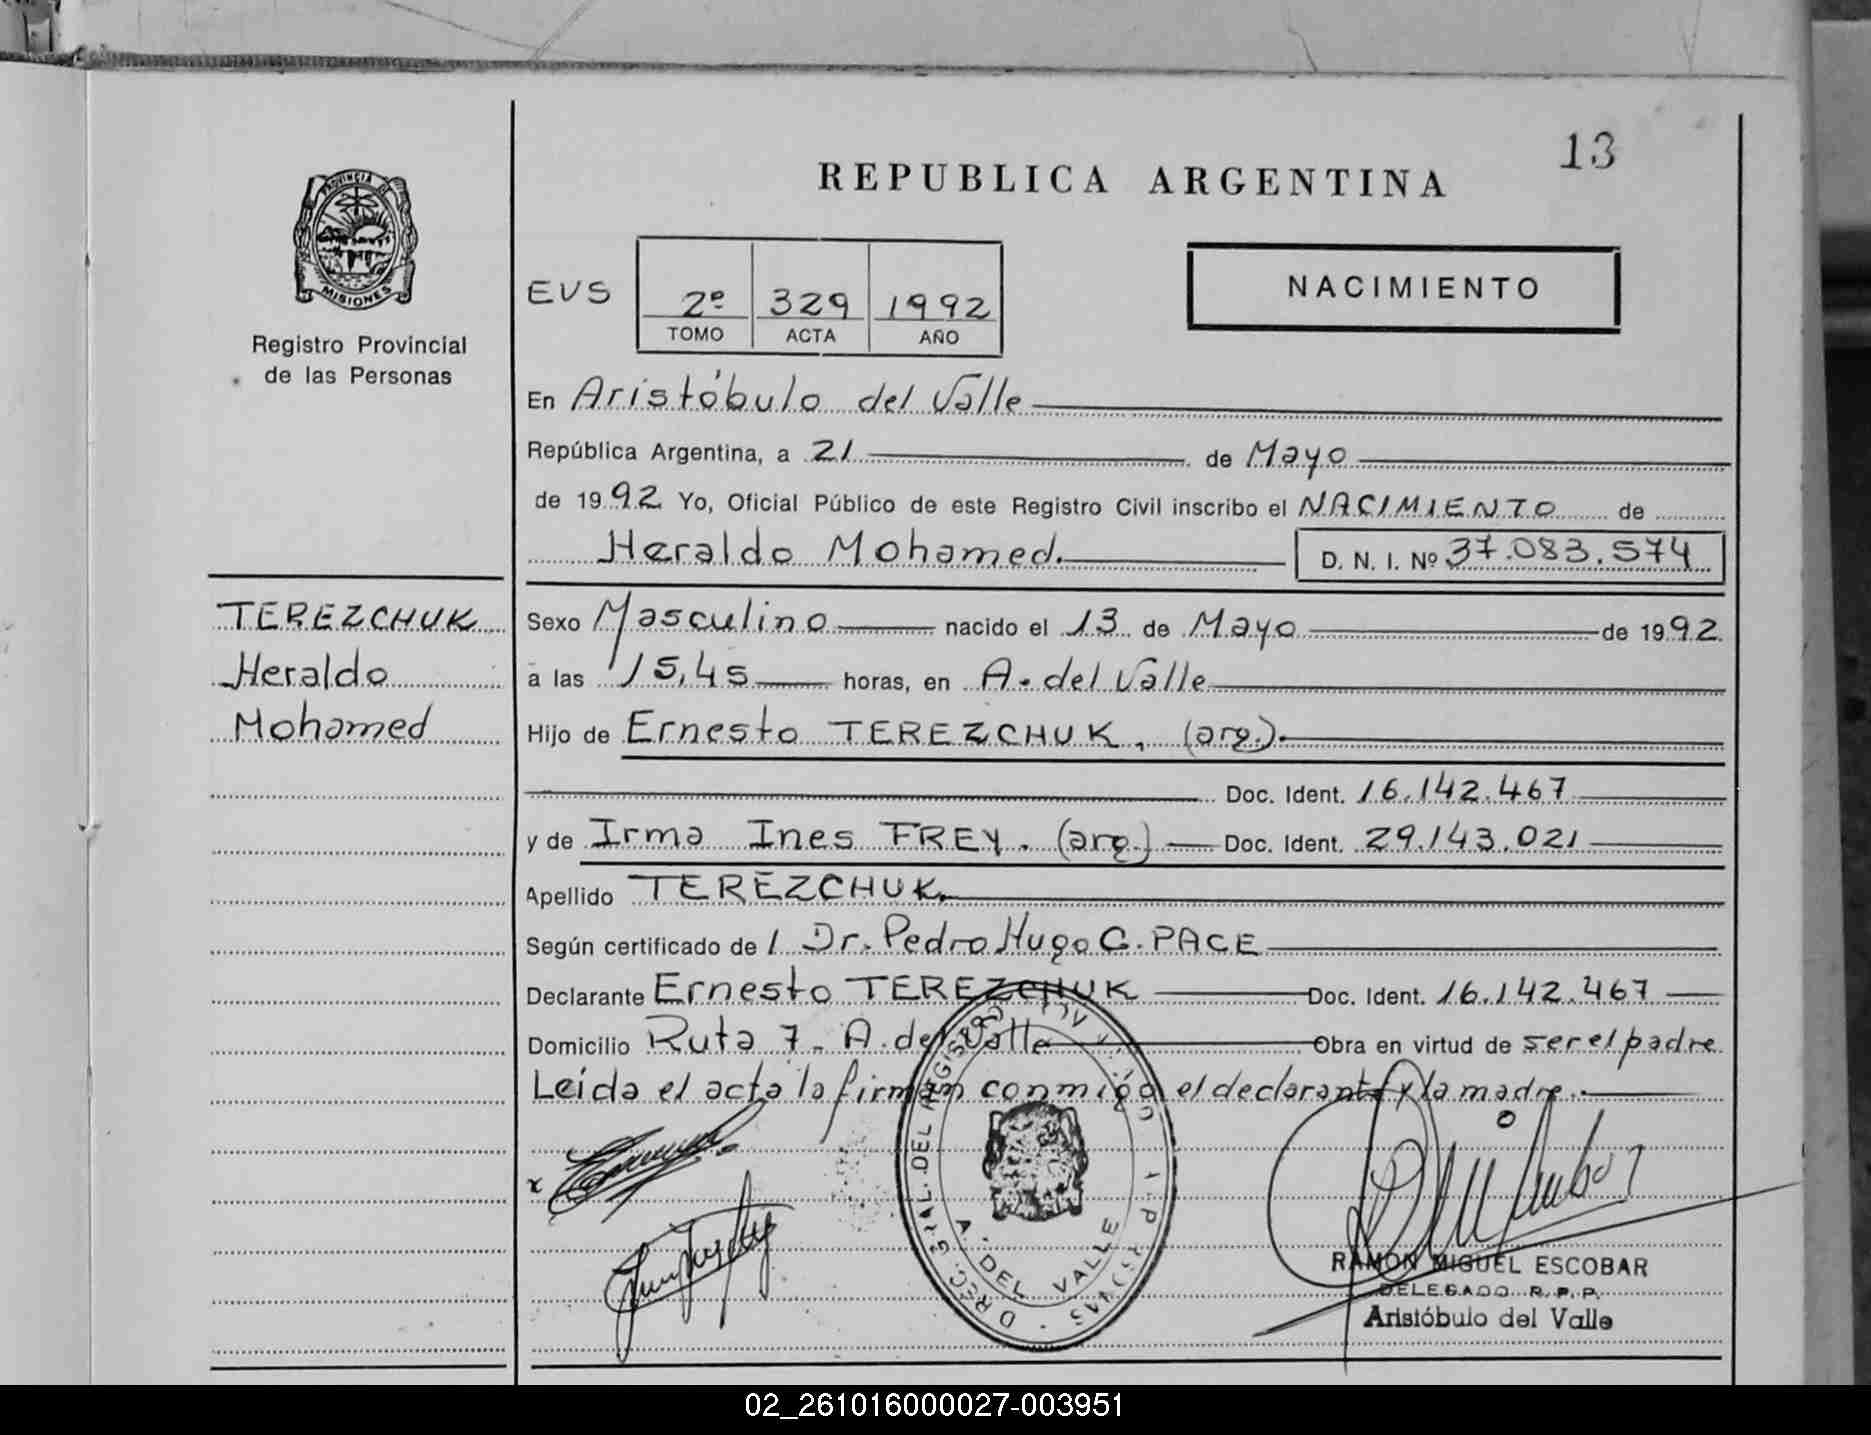 13
REPUBLICA ARGENTINA
PROVINCIA DE
MISIONES
Registro Provincial
de las Personas
EVS
2º 329 1992
TOMO ACTA AÑO
NACIMIENTO
En Aristóbulo del Valle
República Argentina, a 21 de Mayo
de 1992 Yo, Oficial Público de este Registro Civil inscribo el NACIMIENTO de
Heraldo Mohamed. D. N. I. Nº 37.083.574
TEREZCHUK
Heraldo
Mohamed
Sexo Masculino nacido el 13 de Mayo de 1992
a las 15,45 horas, en A. del Valle
Hijo de Ernesto TEREZCHUK. (arg.).
Doc. Ident. 16.142.467
y de Irma Ines FREY. (arg.) Doc. Ident. 29.143.021
Apellido TEREZCHUK.
Según certificado de / Dr. Pedro Hugo C. PACE
Declarante Ernesto TEREZCHUK Doc. Ident. 16.142.467
Domicilio Ruta 7 - A. del Valle Obra en virtud de ser el padre
Leida el acta la firman conmigo el declarante y la madre.
x
A. DEL VALLE
RAMON MIGUEL ESCOBAR
DELEGADO R. P. P.
Aristóbulo del Valle
02_261016000027-003951